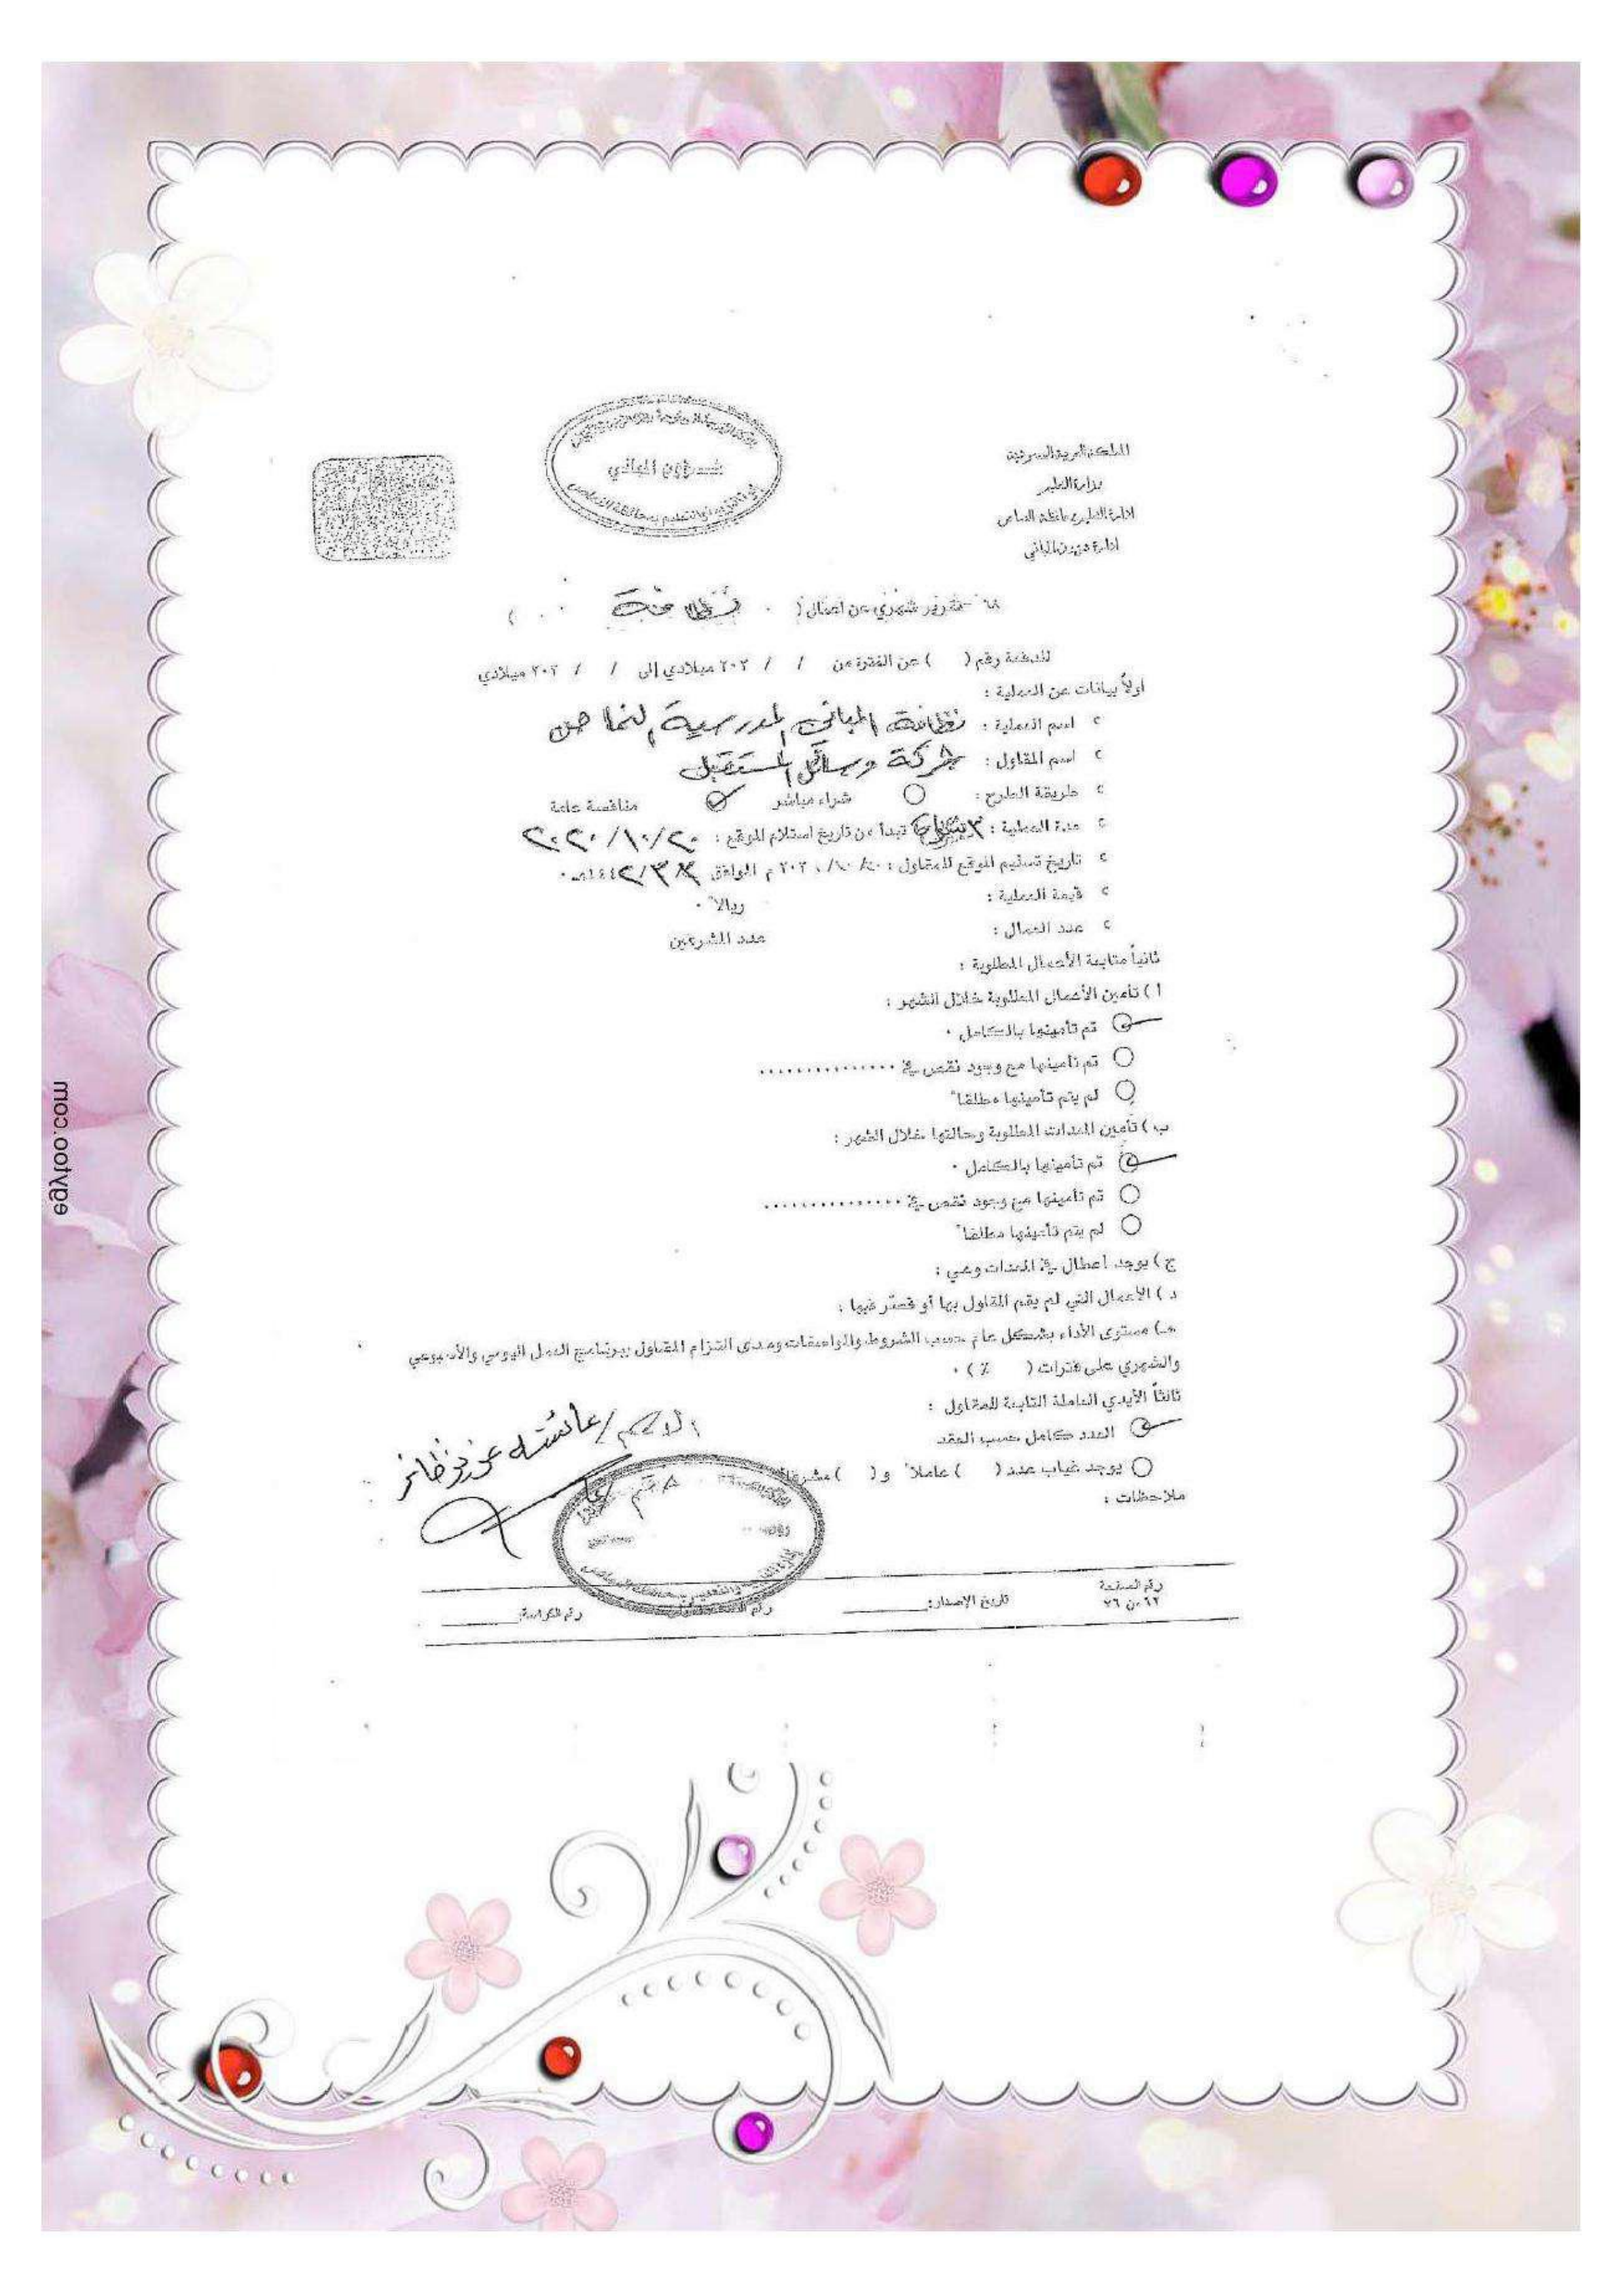 المملكة العربية السعودية
وزارة التعليم
إدارة التعليم بمحافظة النماص
إدارة شؤون المباني
شؤون المباني
تقرير شهري عن أعمال ( نظافة )
للدفعة رقم ( ) عن الفترة من / / ٢٠٢ ميلادي إلى / / ٢٠٢ ميلادي
أولاً بيانات عن العملية :
اسم العملية : نظافة المباني المدرسية بالنماص
اسم المقاول : شركة وسائل المستقبل
طريقة الطرح : شراء مباشر منافسة عامة
مدة العملية : ٣ تبدأ من تاريخ استلام الموقع : ٢٠٢٠/١٠/٢٠
تاريخ تسليم الموقع للمقاول : ٢٠/١٠/٢٠٢٠ م الموافق ١٤٤٢/٣/٣هـ
قيمة العملية : ريالاً
عدد العمال : عدد المشرفين
ثانياً متابعة الأعمال المطلوبة :
أ ) تأمين الأعمال المطلوبة خلال الشهر :
تم تأمينها بالكامل .
تم تأمينها مع وجود نقص في ...............
لم يتم تأمينها مطلقاً
ب ) تأمين المعدات المطلوبة وحالتها خلال الشهر :
تم تأمينها بالكامل .
تم تأمينها مع وجود نقص في ...............
لم يتم تأمينها مطلقاً
ج ) يوجد أعطال في المعدات وهي :
د ) الأعمال التي لم يقم المقاول بها أو قصر فيها :
هـ) مستوى الأداء بشكل عام حسب الشروط والمواصفات ومدى التزام المقاول ببرنامج العمل اليومي والأسبوعي
والشهري على فترات ( % ) .
ثالثاً الأيدي العاملة التابعة للمقاول :
العدد كامل حسب العقد
يوجد غياب عدد ( ) عاملاً و ( ) مشرفاً
ملاحظات :
الاسم / عائشه عوض ظافر
رقم الصفحة
٦٢ من ٧٦
تاريخ الإصدار:
رقم الكراسة:
egytoo.com